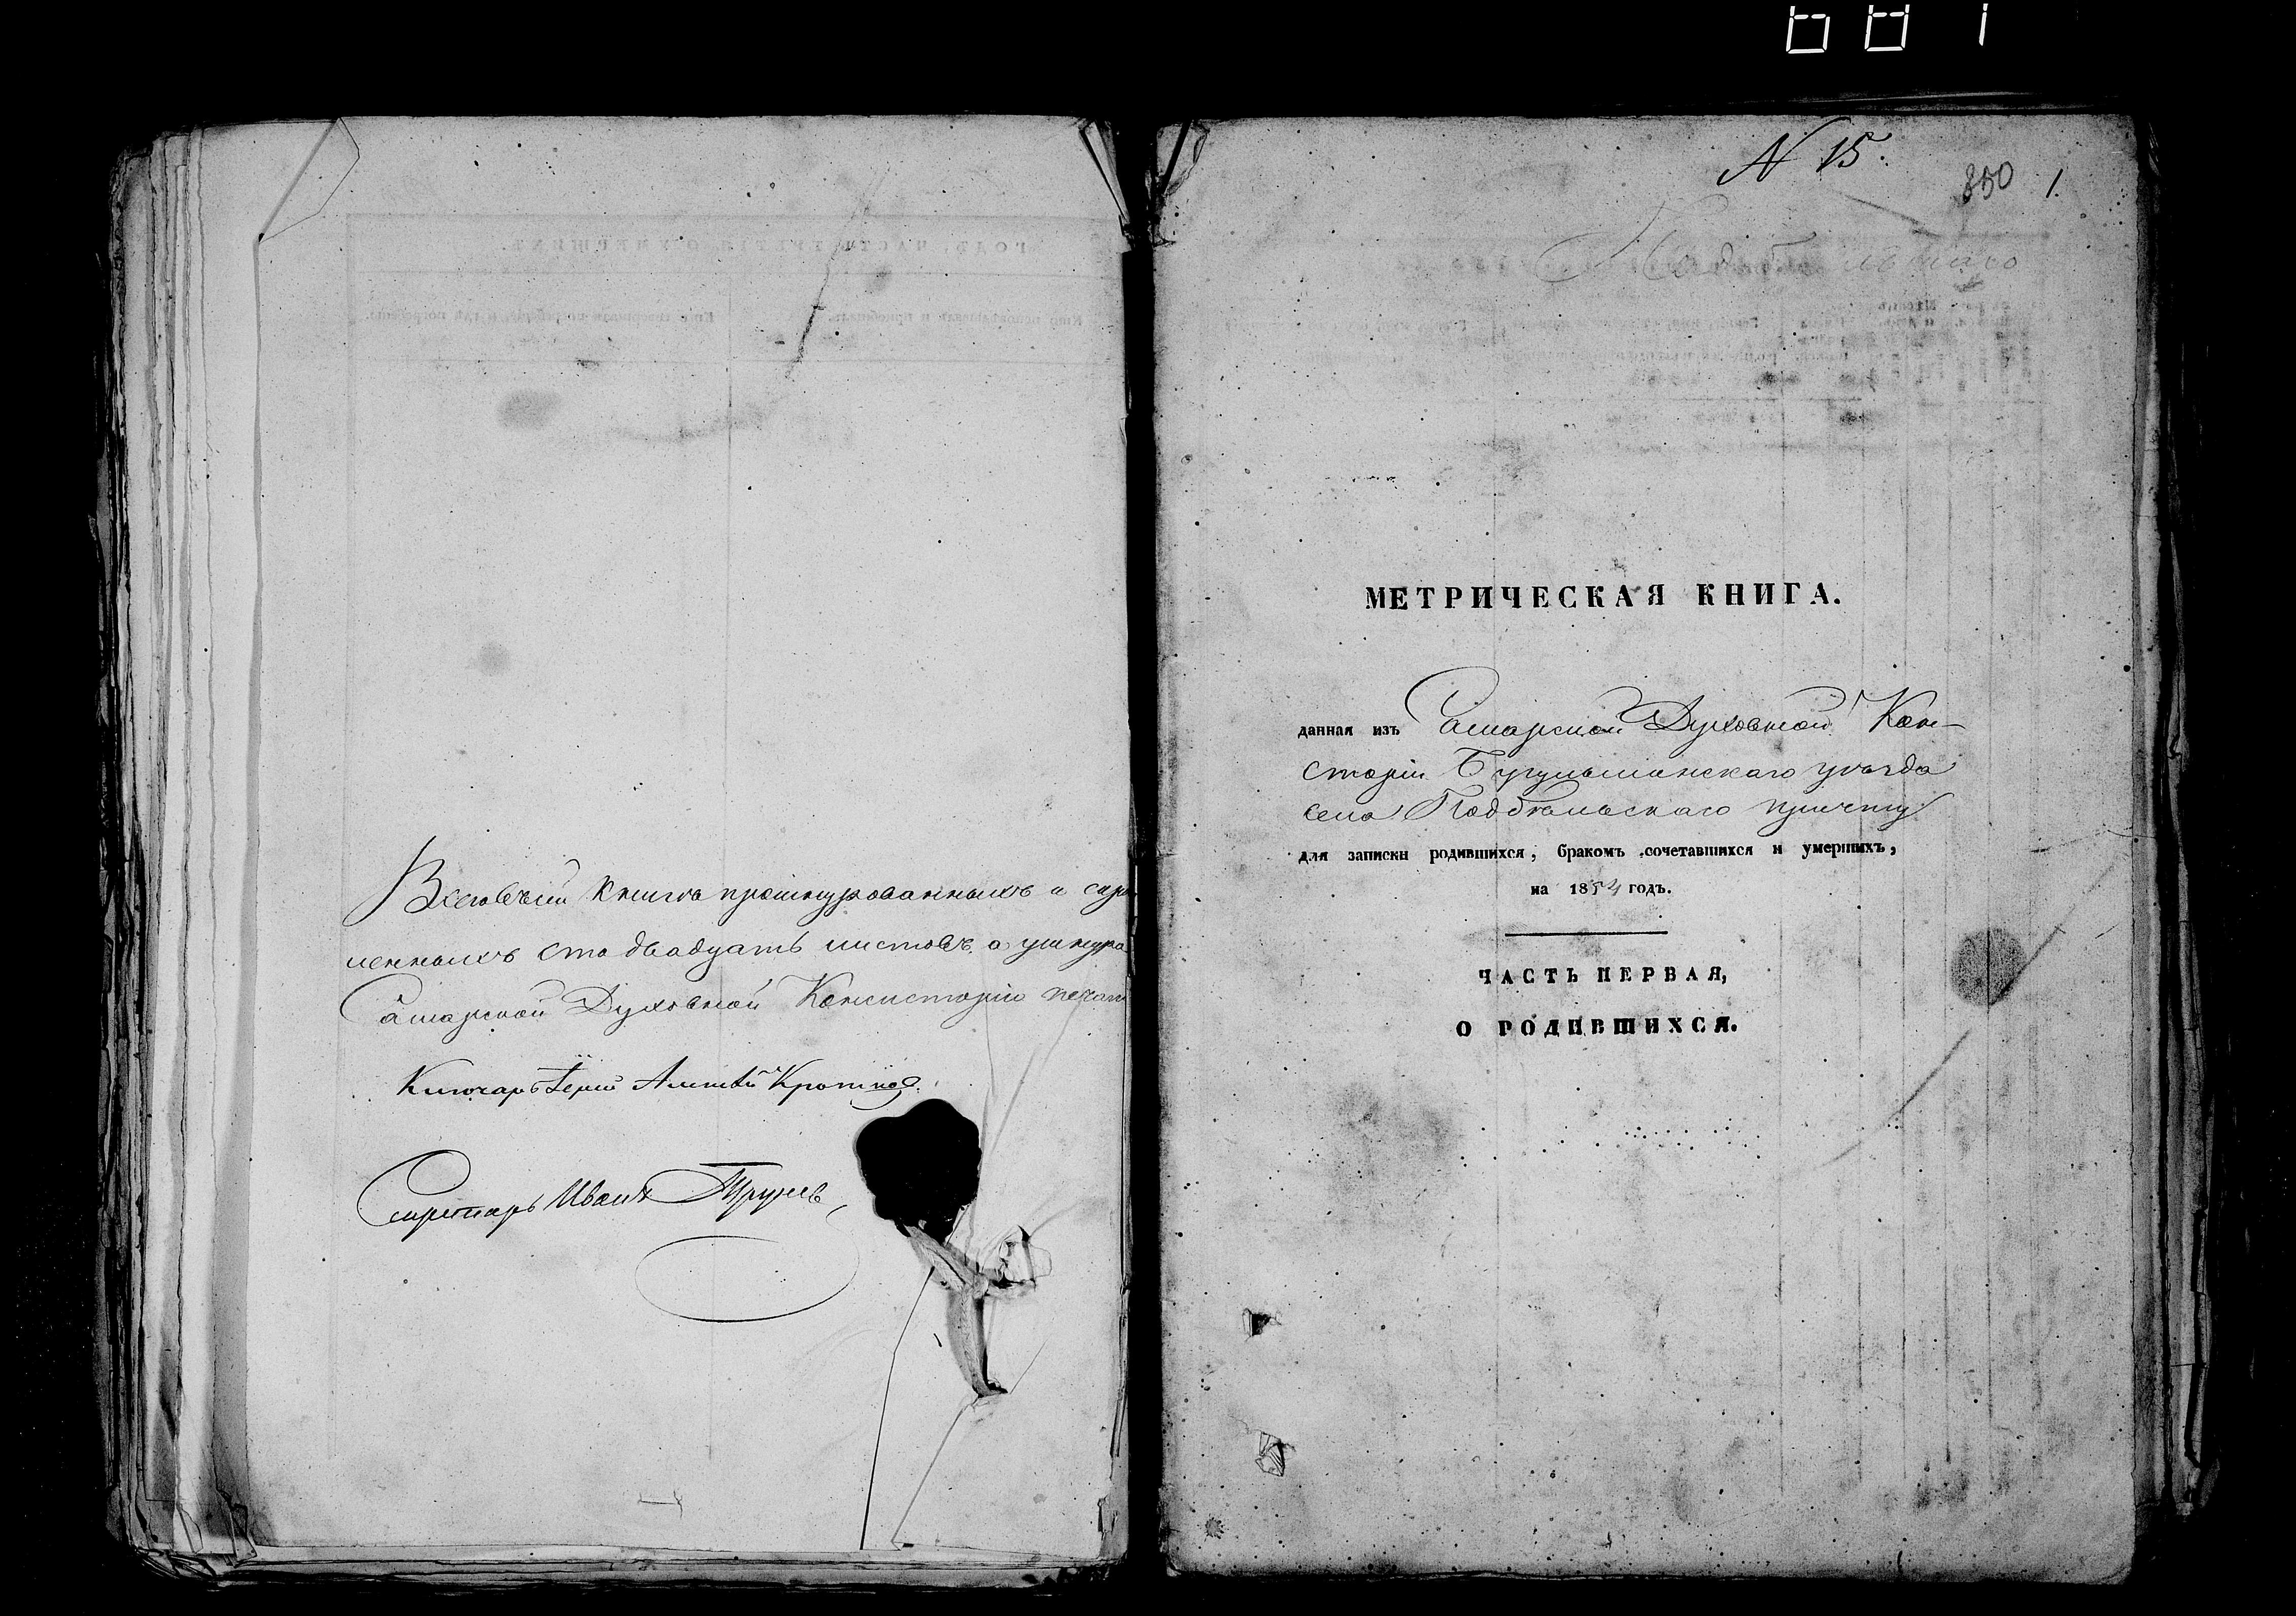 Всей сей книгѣ прошнурованныхъ и скрѣ
пленныхъ сто двадцать листовъ, а у шнура
Самарской Духовной Консисторіи печать
Ключарь Іерей Алексѣй Кротковъ.
Секретарь Иванъ
N 15.
350 1.
МЕТРИЧЕСКАЯ КНИГА.
данная изъ Самарской Духовной Кон-
сторіи Бугульминскаго уѣзда
села Поддбѣльскаго причту
для записки родившихся, бракомъ сочетавшихся и умершихъ,
на 1854 годъ.
ЧАСТЬ ПЕРВАЯ,
О РОДИВШИХСЯ.